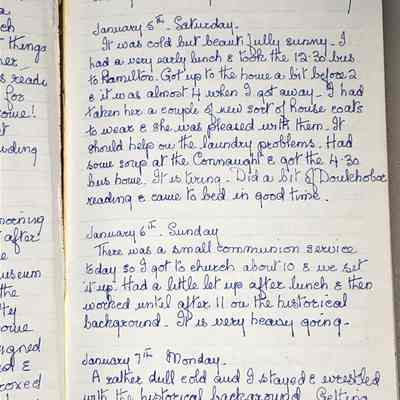 ch
things
her
s readi
for
ome!
t
wding
morning
after
e
useum
the
44
orue
signed
d &
roxed
January 5th. Saturday.
It was cold but beautifully sunny. I
had a very early lunch & took the 12.30 bus
to Hamilton. Got up to the home a bit before 2
& it was almost 4 when I got away. I had
taken her a couple of new sort of house coats
to wear & she was pleased with them. It
should help on the laundry problems. Had
some soup at the Connaught & got the 4.30
bus home. It is tiring. Did a bit of Doukhobor
reading & came to bed in good time.
January 6th. Sunday
There was a small communion service
today so I got to church about 10 & we set
it up. Had a little let up after lunch & then
worked until after 11 on the historical
background. It is very heavy going.
January 7th Monday.
A rather dull cold and I stayed & wrestled
with the historical background. Getting